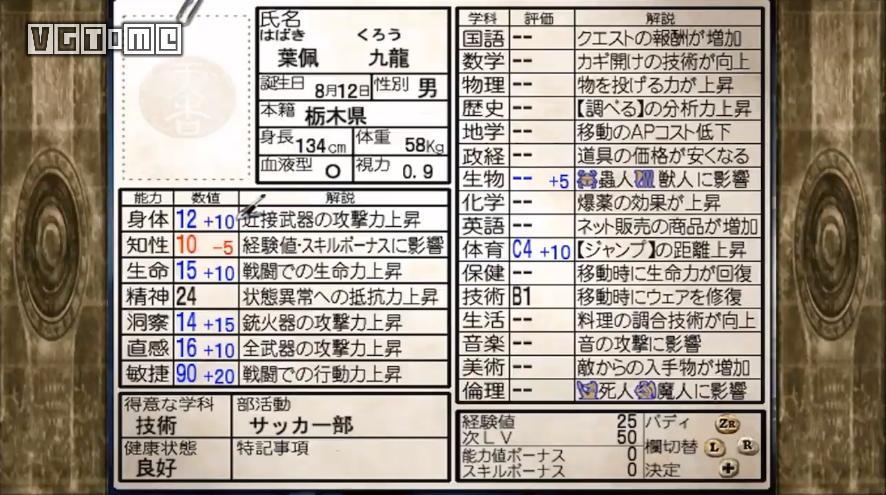 VGTIME
氏名
はばき くろう
葉佩 九龍
誕生日 8月12日 性別 男
本籍 栃木県
身長 134cm 体重 58Kg
血液型 O 視力 0.9
能力 数値 解説
身体 12 +10 近接武器の攻撃力上昇
知性 10 -5 経験値・スキルボーナスに影響
生命 15 +10 戦闘での生命力上昇
精神 24 状態異常への抵抗力上昇
洞察 14 +15 銃火器の攻撃力上昇
直感 16 +10 全武器の攻撃力上昇
敏捷 90 +20 戦闘での行動力上昇
得意な学科 部活動
技術 サッカー部
健康状態 特記事項
良好
学科 評価 解説
国語 -- クエストの報酬が増加
数学 -- カギ開けの技術が向上
物理 -- 物を投げる力が上昇
歴史 -- 【調べる】の分析力上昇
地学 -- 移動のAPコスト低下
政経 -- 道具の価格が安くなる
生物 -- +5 蟲人 獣人に影響
化学 -- 爆薬の効果が上昇
英語 -- ネット販売の商品が増加
体育 C4 +10 【ジャンプ】の距離上昇
保健 -- 移動時に生命力が回復
技術 B1 移動時にウェアを修復
生活 -- 料理の調合技術が向上
音楽 -- 音の攻撃に影響
美術 -- 敵からの入手物が増加
倫理 -- 死人 魔人に影響
経験値 25 バディ ZR
次LV 50 欄切替 L R
能力値ボーナス 0
スキルボーナス 0 決定 +